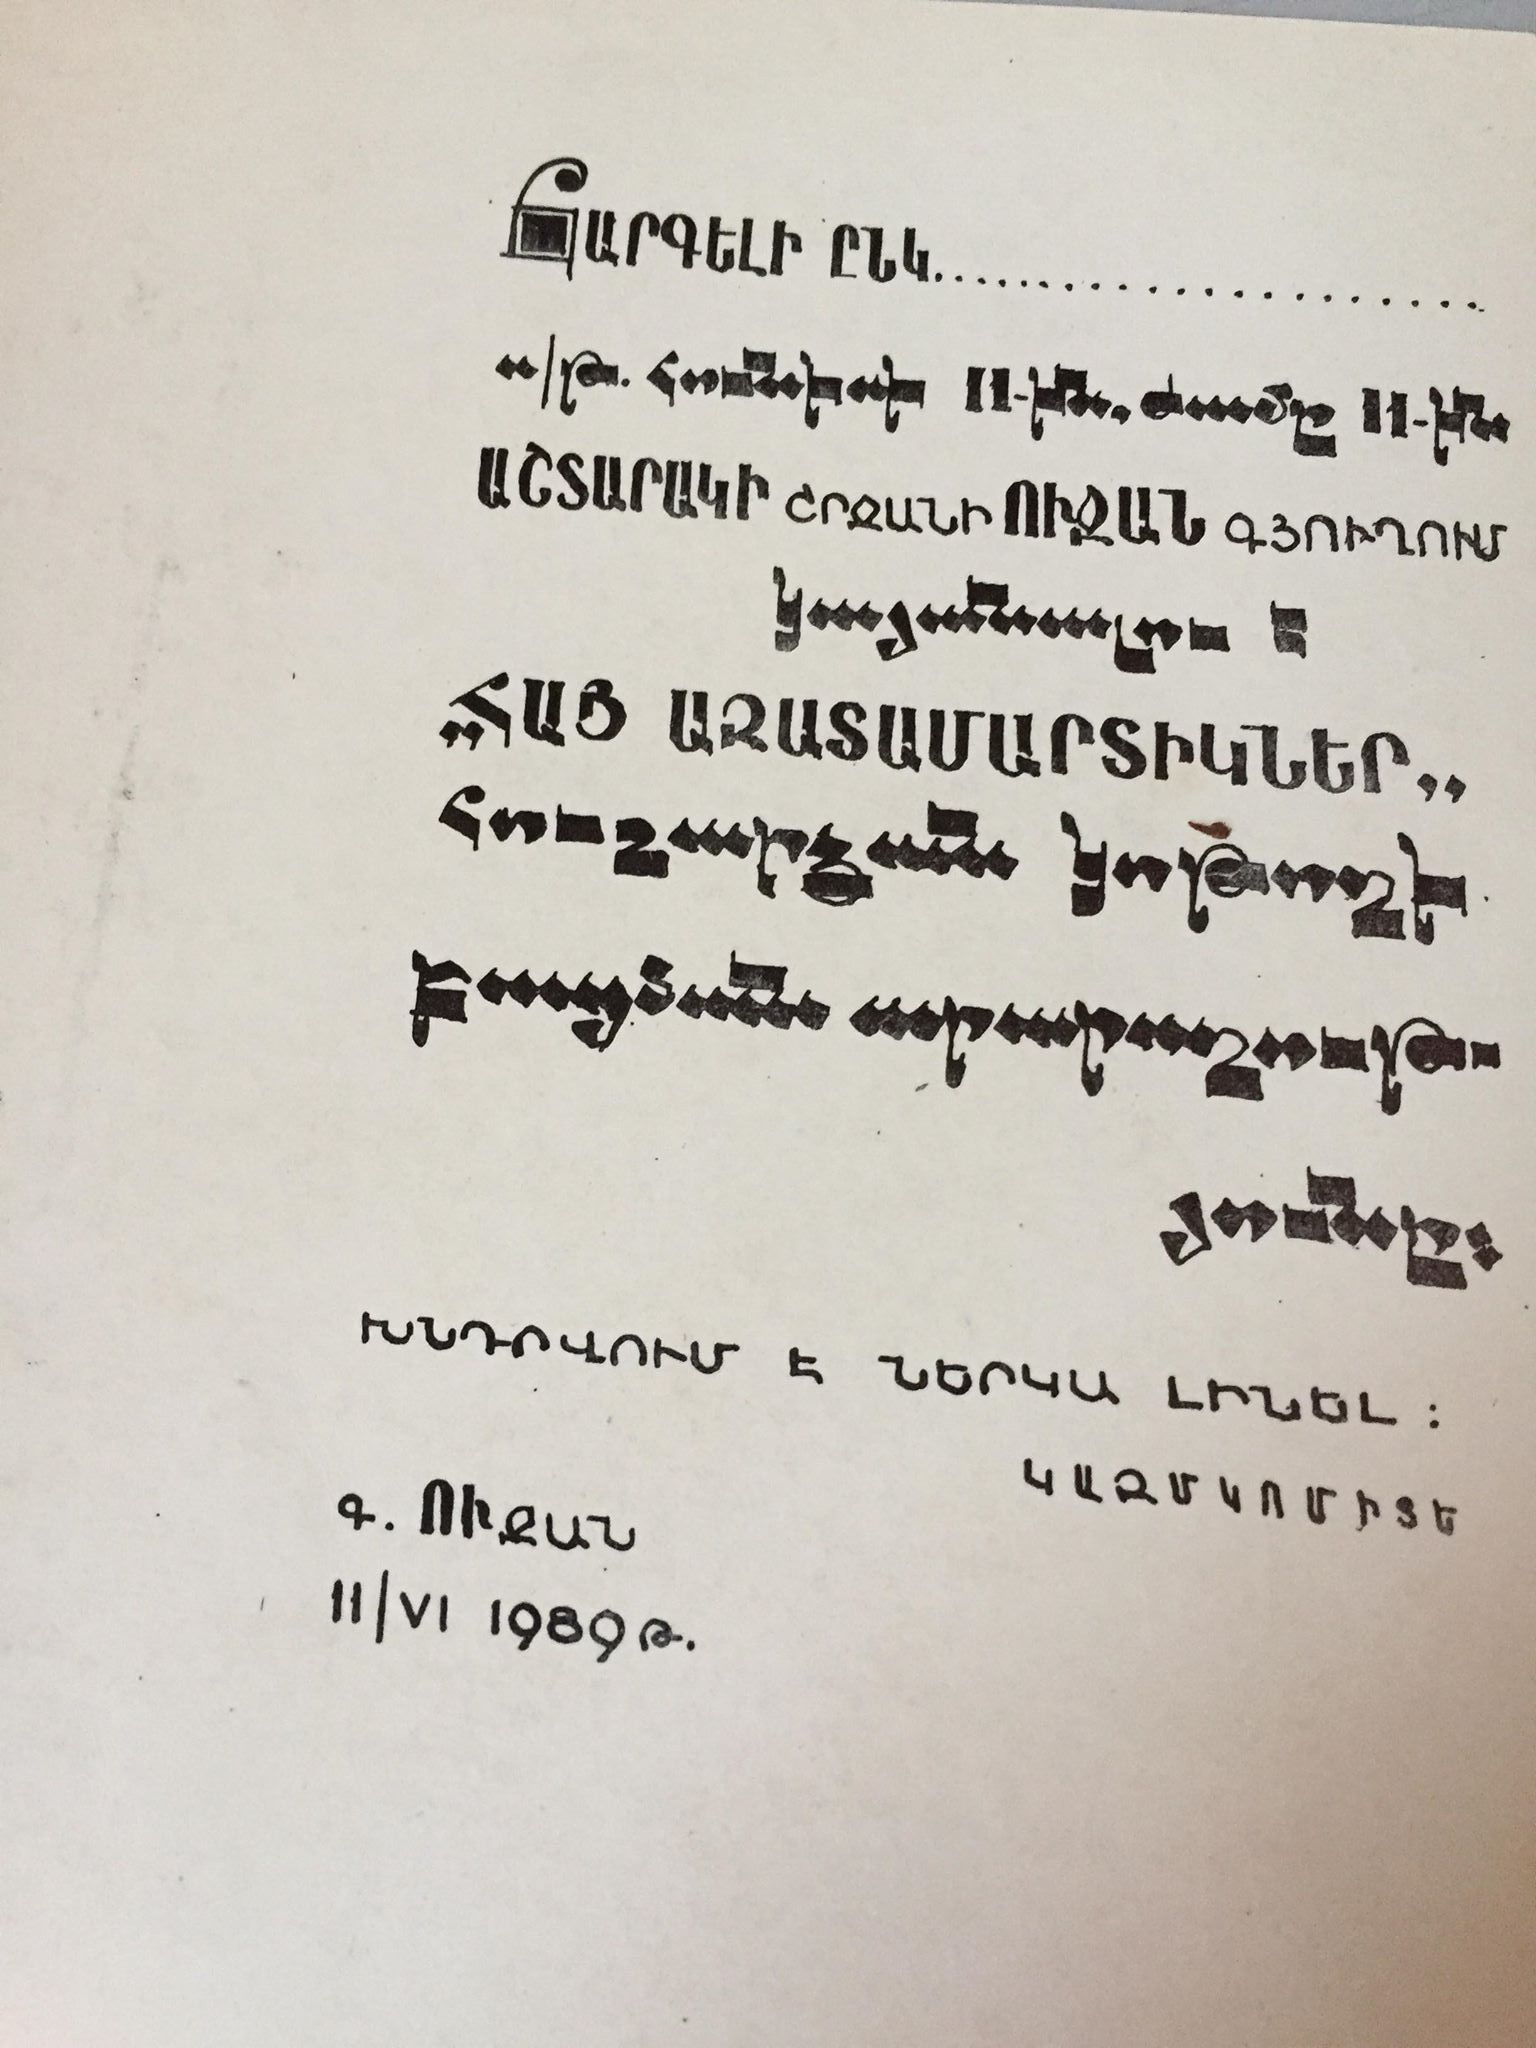 ՀԱՐԳԵԼԻ ԸՆԿ......................
ս/թ. հունիսի 11-ին, ժամը 11-ին
ԱՇՏԱՐԱԿԻ ՇՐՋԱՆԻ ՈՒՋԱՆ ԳՅՈՒՂՈՒՄ
կայանալու է
„ՀԱՅ ԱԶԱՏԱՄԱՐՏԻԿՆԵՐ,,
հուշարձան կոթողի
բացման արարողութու
յունը:
ԽՆԴՐՎՈՒՄ Է ՆԵՐԿԱ ԼԻՆԵԼ :
ԿԱԶՄԿՈՄԻՏԵ
Գ. ՈՒՋԱՆ
11/VI 1989թ.